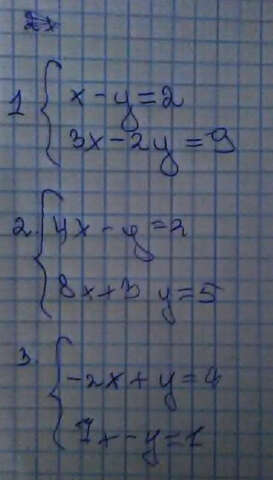 1 { x - y = 2
3x - 2y = 9
2. { 4x - y = 2
8x + 3 y = 5
3. { -2x + y = 4
7x - y = 1